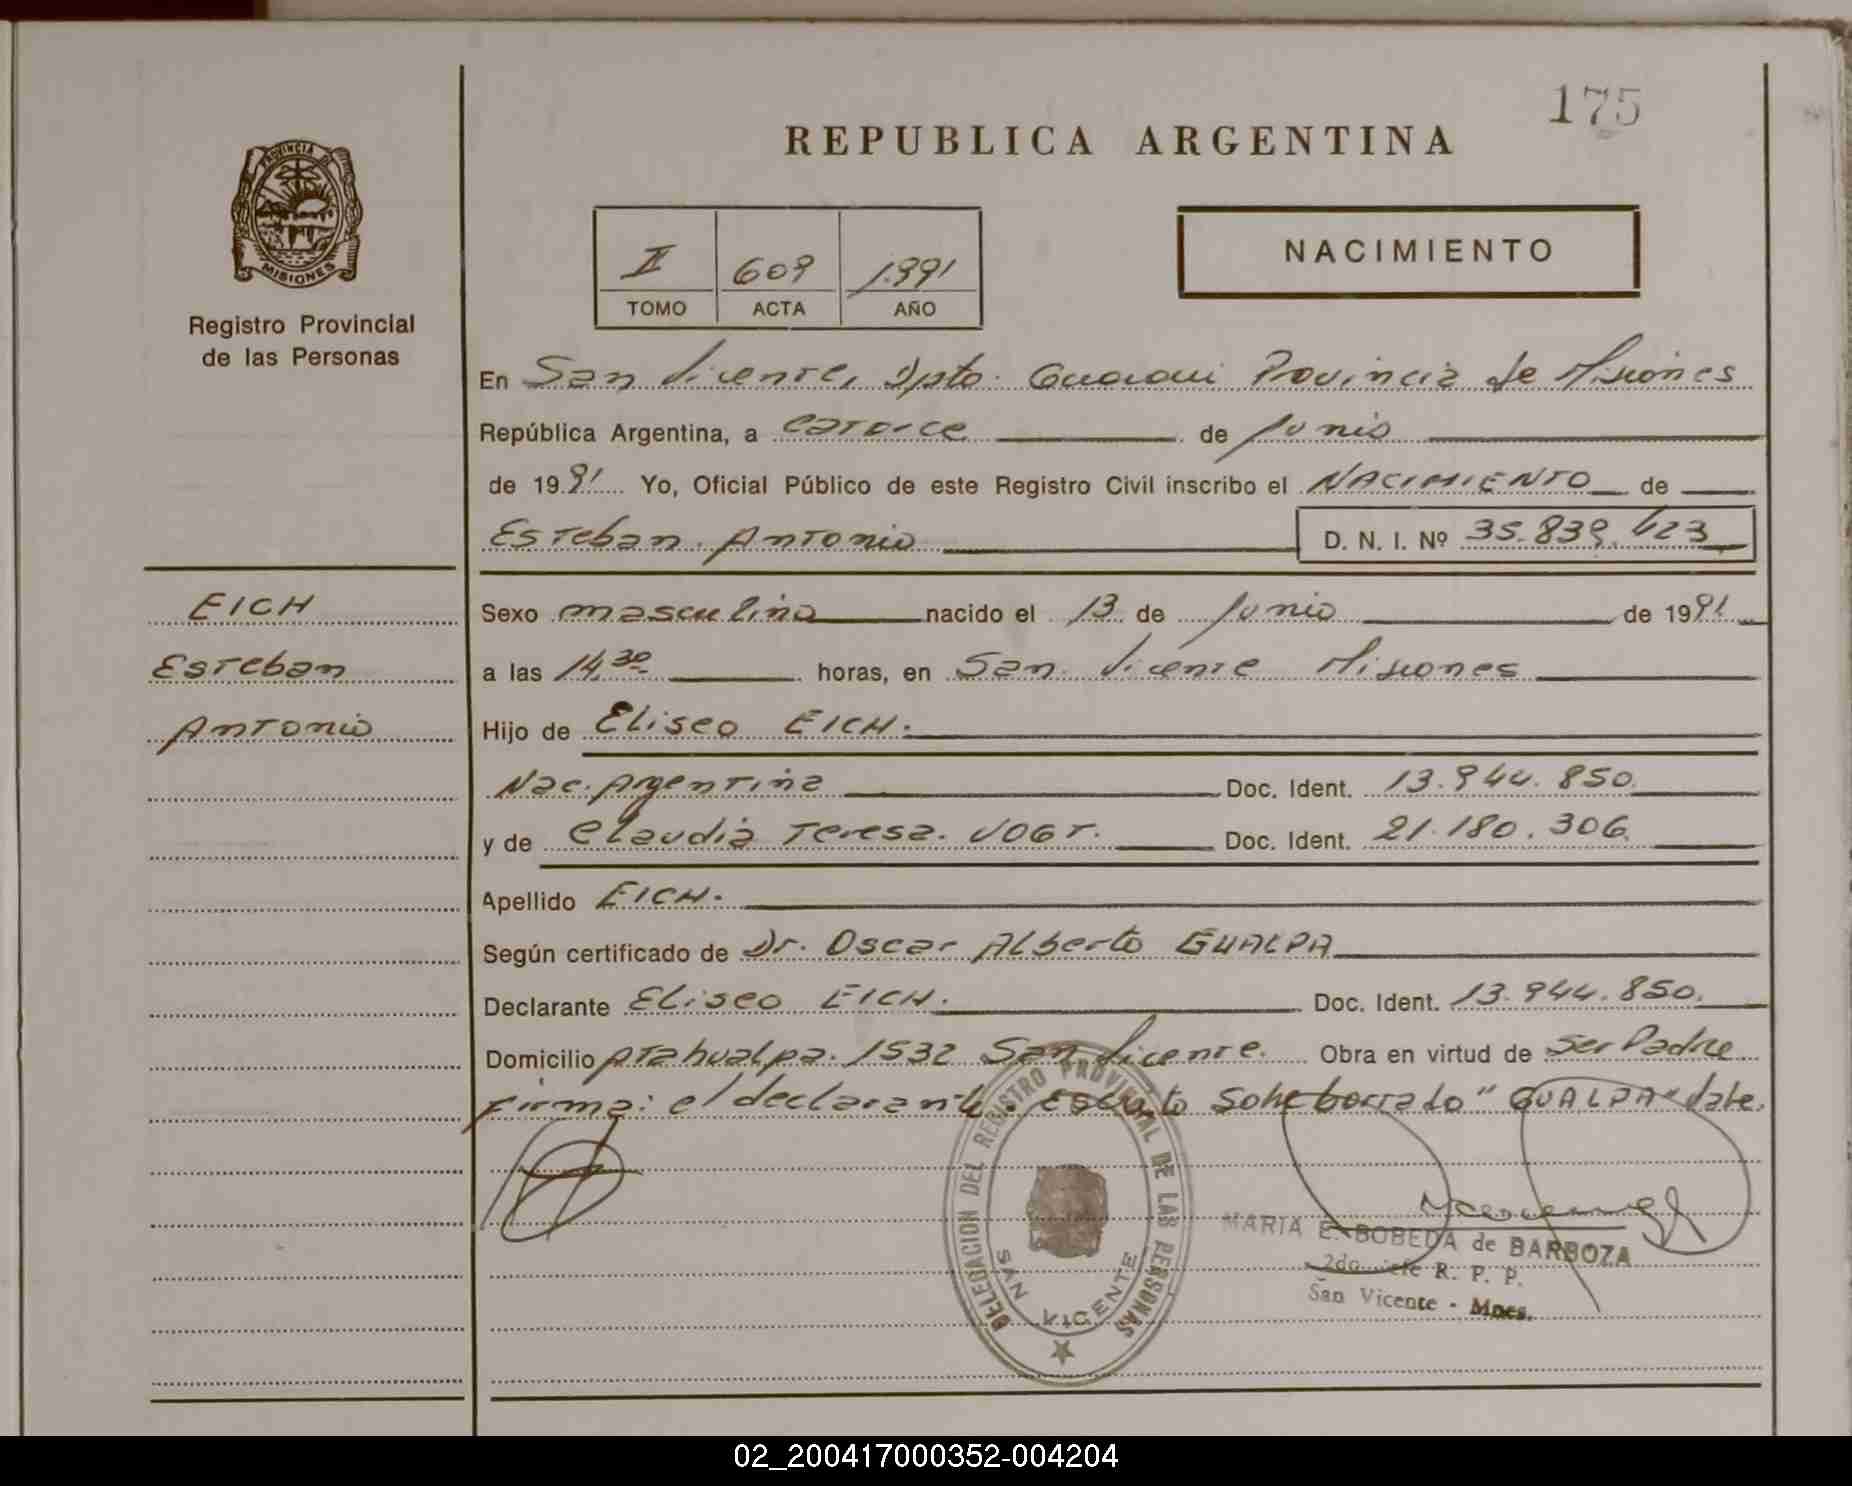 175
REPUBLICA ARGENTINA
PROVINCIA DE
MISIONES
Registro Provincial
de las Personas
II 609 1.991
TOMO ACTA AÑO
NACIMIENTO
En San Vicente, Dpto. Guarani Provincia de Misiones
República Argentina, a Catorce de Junio
de 1991 Yo, Oficial Público de este Registro Civil inscribo el NACIMIENTO de
Esteban Antonio D. N. I. Nº 35.839.423
EICH
Esteban
Antonio
Sexo masculino nacido el 13 de Junio de 1991
a las 14,30 horas, en San Vicente Misiones
Hijo de Eliseo EICH.
Nac. Argentina Doc. Ident. 13.944.850.
y de Claudia Teresa. VOGT. Doc. Ident. 21.180.306.
Apellido EICH.
Según certificado de Dr. Oscar Alberto GUALPA
Declarante Eliseo EICH. Doc. Ident. 13.944.850.
Domicilio Atahualpa. 1532 San Vicente. Obra en virtud de Ser Padre
Firma: el declarante. Escrito Sobreborrado "GUALPA" Vale.
DELEGACION DEL REGISTRO PROVINCIAL DE LAS PERSONAS
SAN VICENTE
MARIA E. BOBEDA de BARBOZA
2do. Jefe R. P. P.
San Vicente - Mnes.
02_200417000352-004204